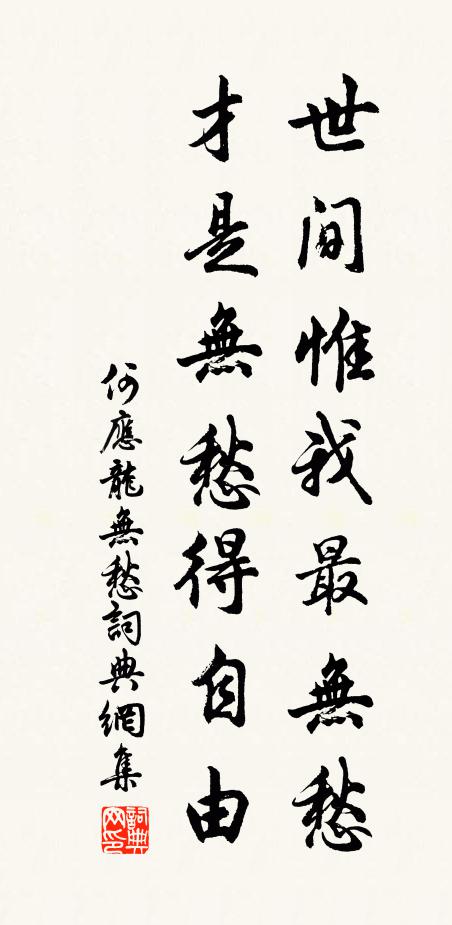 世間惟我最無愁
才是無愁得自由
何應龍無愁詞典網集
詞典网印